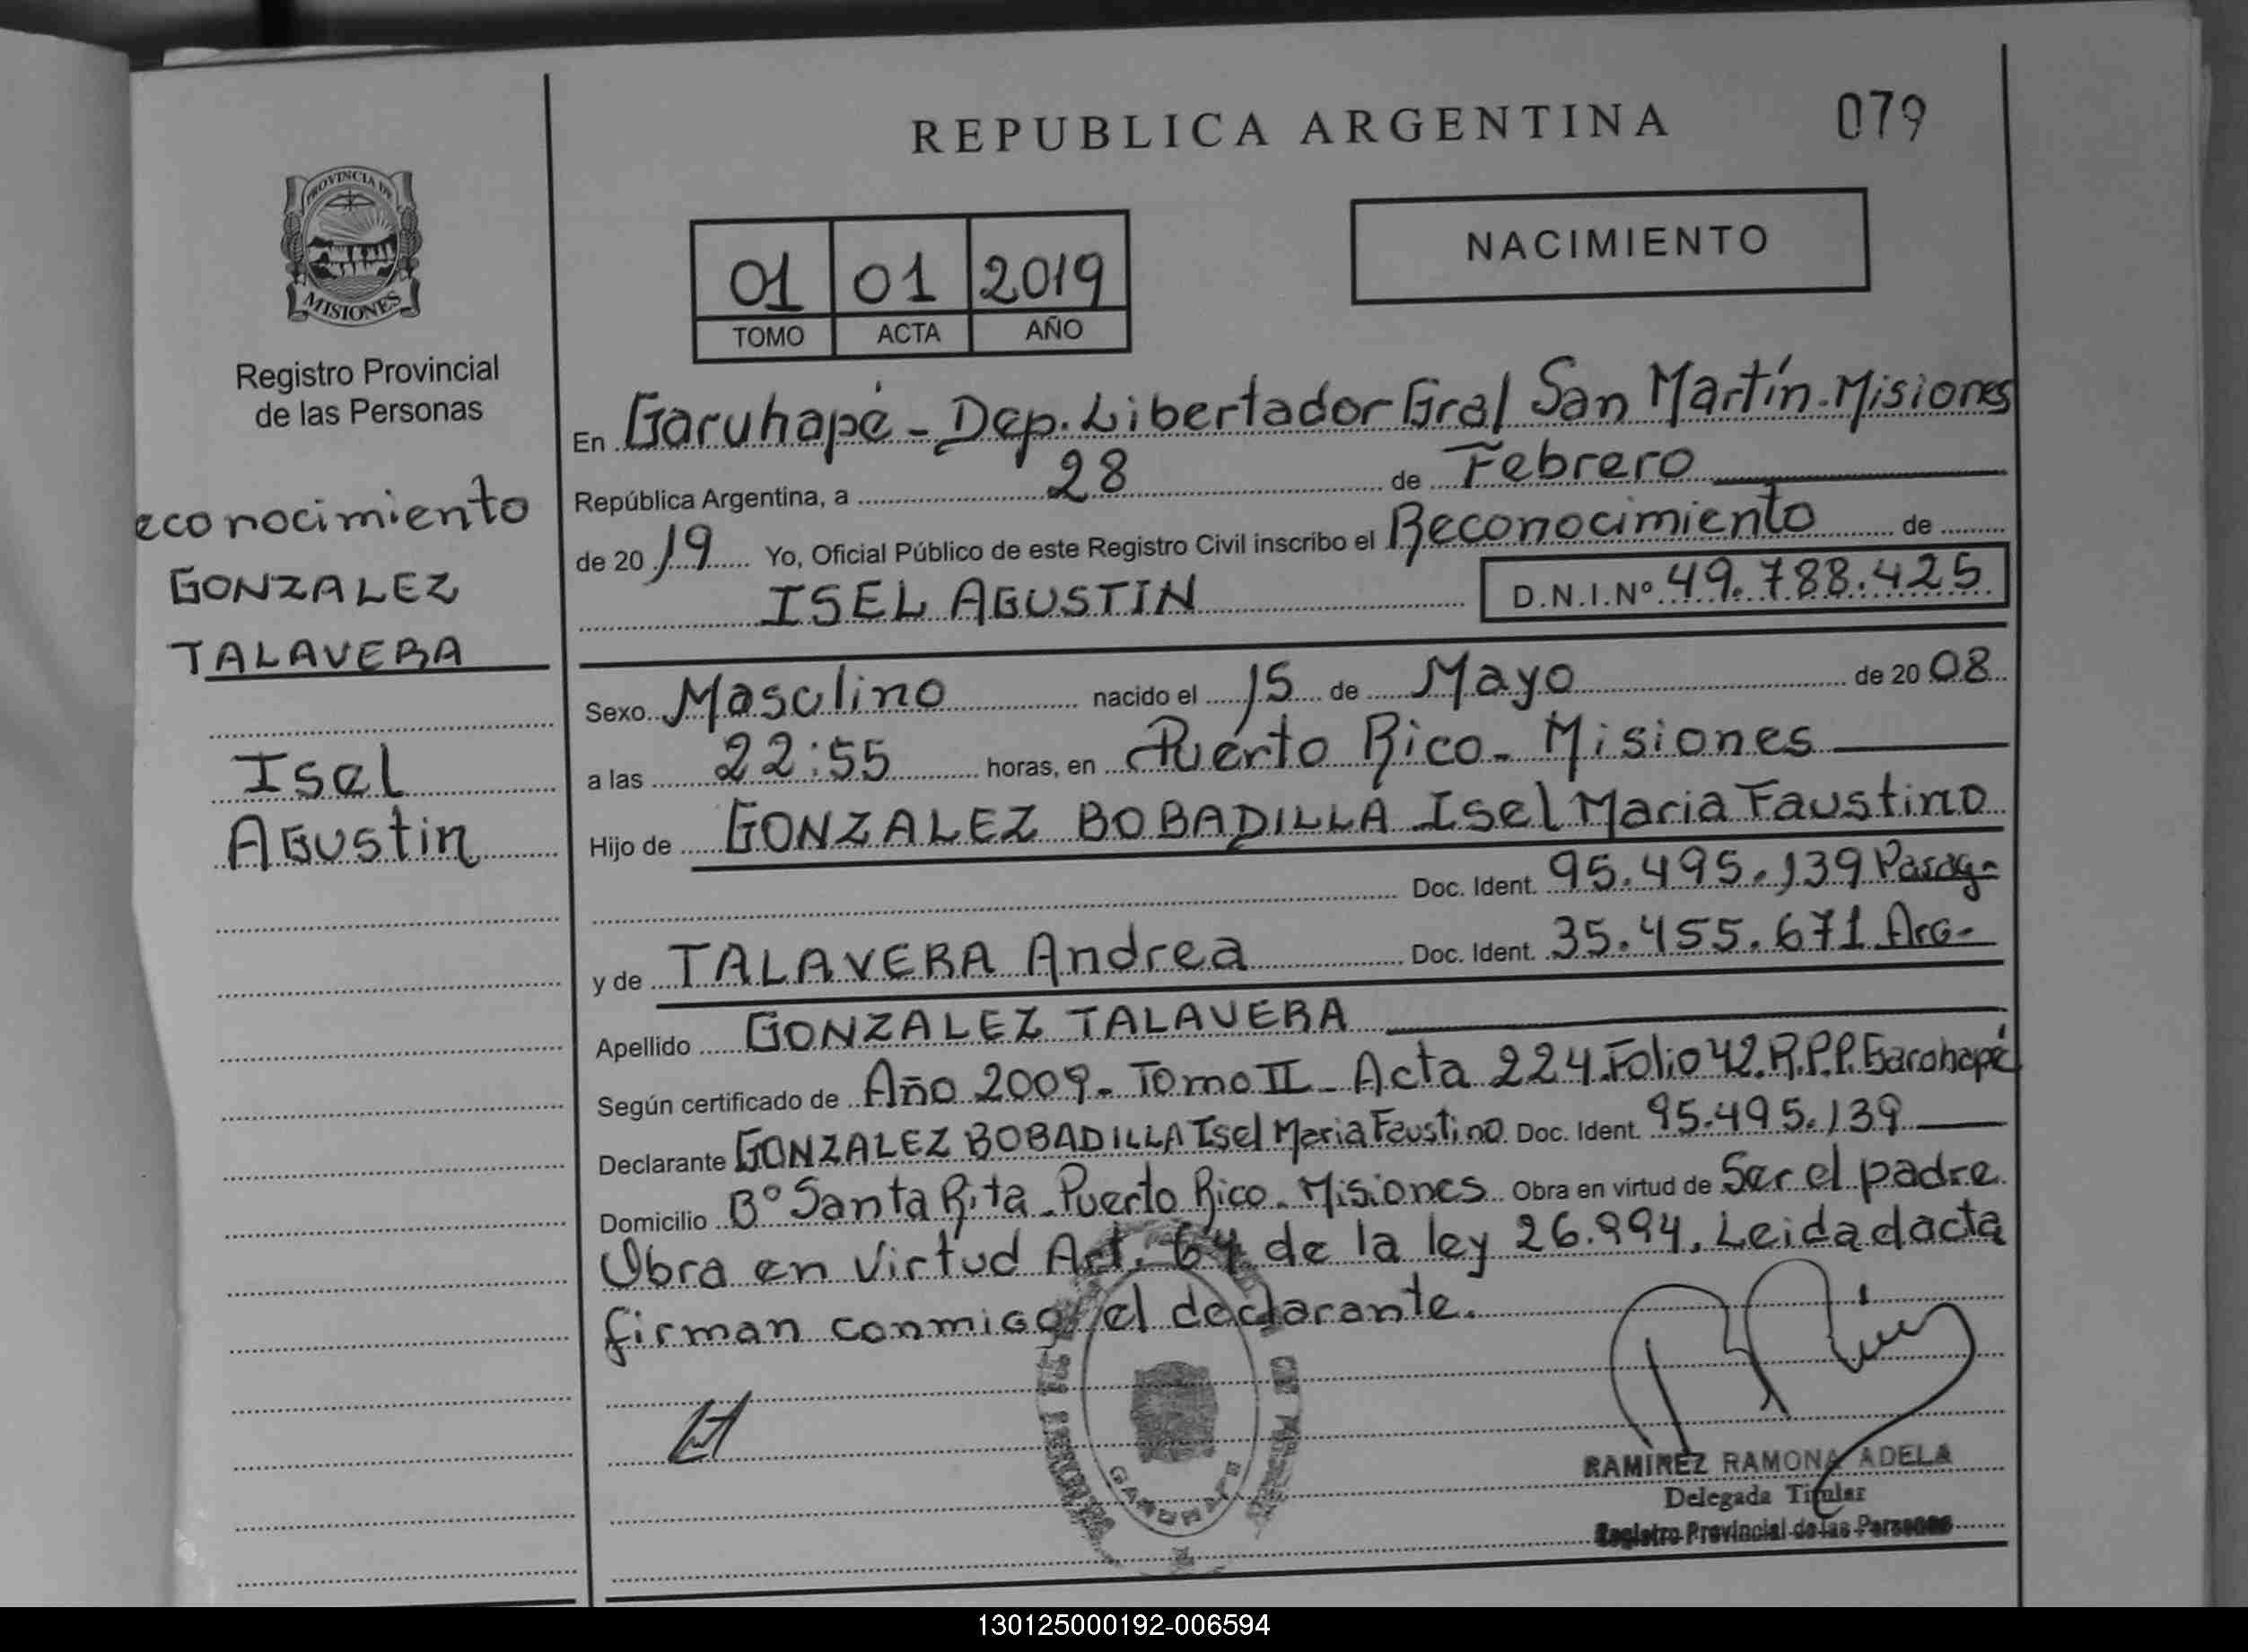 REPUBLICA ARGENTINA
079
PROVINCIA DE
MISIONES
Registro Provincial
de las Personas
01 01 2019
TOMO ACTA AÑO
NACIMIENTO
econocimiento
GONZALEZ
TALAVERA
Isel
Agustin
En Garuhapé - Dep. Libertador Gral San Martín. Misiones
República Argentina, a 28 de Febrero
de 2019 Yo, Oficial Público de este Registro Civil inscribo el Reconocimiento de
ISEL AGUSTIN D.N.I.Nº 49.788.425
Sexo Masculino nacido el 15 de Mayo de 2008
a las 22:55 horas, en Puerto Rico - Misiones
Hijo de GONZALEZ BOBADILLA Isel Maria Faustino
Doc. Ident. 95.495.139 Parag-
y de TALAVERA Andrea Doc. Ident. 35.455.671 Arg-
Apellido GONZALEZ TALAVERA
Según certificado de Año 2009 - Tomo II - Acta 224. Folio 42. R.P.P. Garuhapé
Declarante GONZALEZ BOBADILLA Isel Maria Faustino Doc. Ident. 95.495.139
Domicilio Bº Santa Rita - Puerto Rico - Misiones Obra en virtud de Ser el padre
Obra en virtud Art. 64 de la ley 26.994. Leida dacta
firman conmigo el declarante.
GARUHAPE
RAMIREZ RAMONA ADELA
Delegada Titular
Registro Provincial de las Personas
130125000192-006594